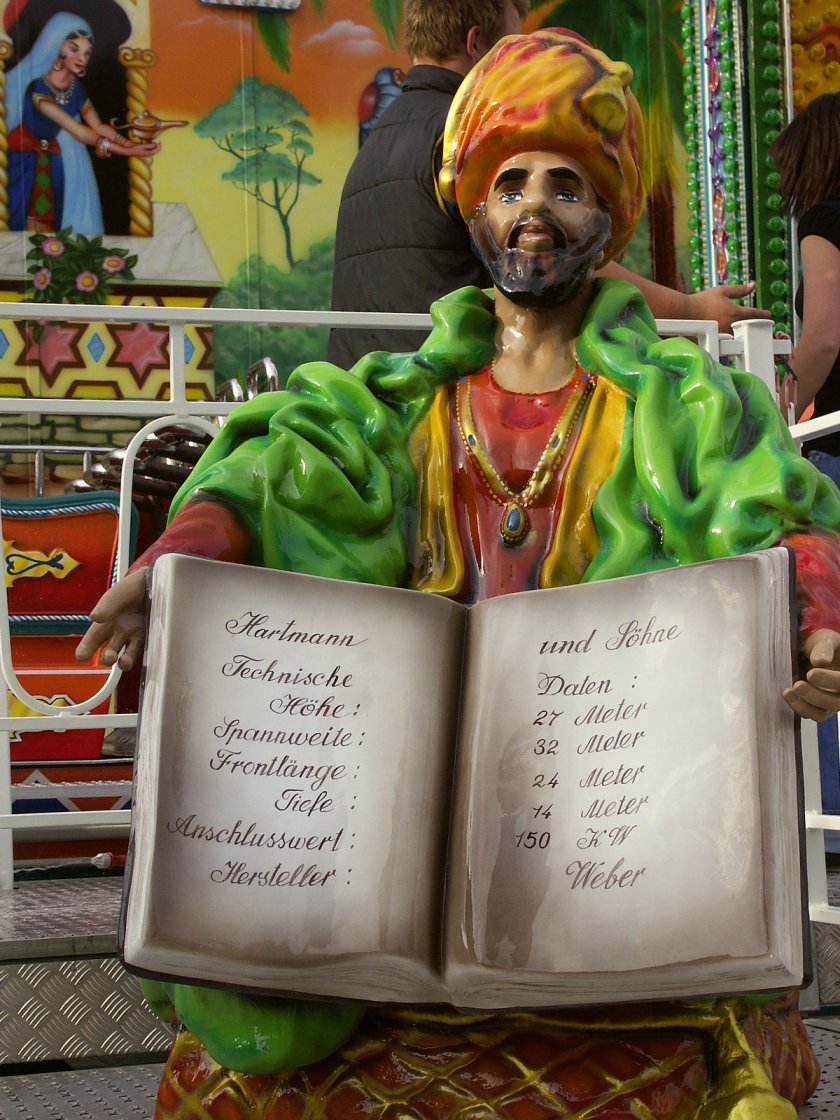 Hartmann und Söhne
Technische Daten :
Höhe : 27 Meter
Spannweite : 32 Meter
Frontlänge : 24 Meter
Tiefe : 14 Meter
Anschlusswert : 150 KW
Hersteller : Weber